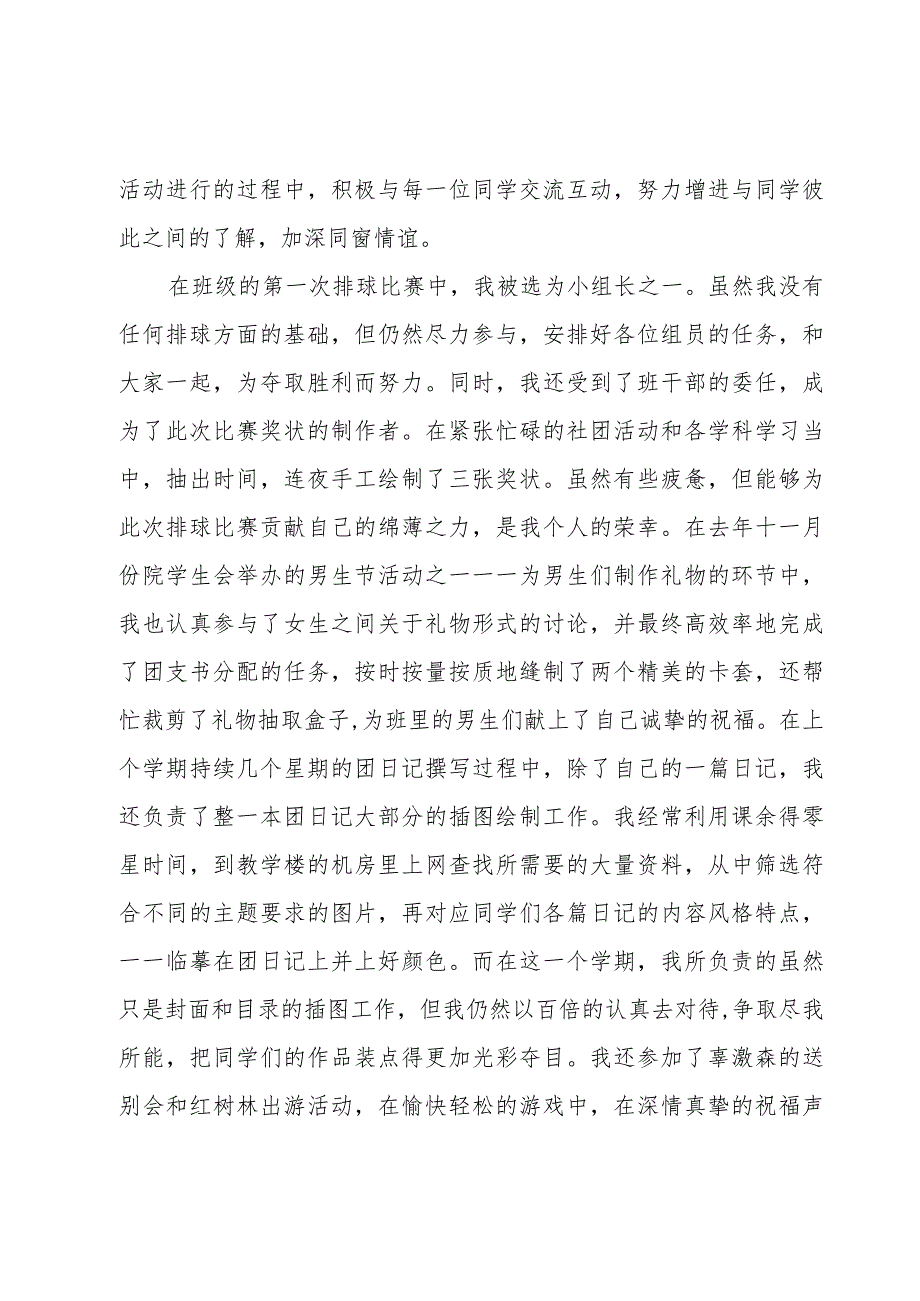 活动进行的过程中，积极与每一位同学交流互动，努力增进与同学彼
此之间的了解，加深同窗情谊。
在班级的第一次排球比赛中，我被选为小组长之一。虽然我没有
任何排球方面的基础，但仍然尽力参与，安排好各位组员的任务，和
大家一起，为夺取胜利而努力。同时，我还受到了班干部的委任，成
为了此次比赛奖状的制作者。在紧张忙碌的社团活动和各学科学习当
中，抽出时间，连夜手工绘制了三张奖状。虽然有些疲惫，但能够为
此次排球比赛贡献自己的绵薄之力，是我个人的荣幸。在去年十一月
份院学生会举办的男生节活动之一一一为男生们制作礼物的环节中，
我也认真参与了女生之间关于礼物形式的讨论，并最终高效率地完成
了团支书分配的任务，按时按量按质地缝制了两个精美的卡套，还帮
忙裁剪了礼物抽取盒子,为班里的男生们献上了自己诚挚的祝福。在上
个学期持续几个星期的团日记撰写过程中，除了自己的一篇日记，我
还负责了整一本团日记大部分的插图绘制工作。我经常利用课余得零
星时间，到教学楼的机房里上网查找所需要的大量资料，从中筛选符
合不同的主题要求的图片，再对应同学们各篇日记的内容风格特点，
一一临摹在团日记上并上好颜色。而在这一个学期，我所负责的虽然
只是封面和目录的插图工作，但我仍然以百倍的认真去对待,争取尽我
所能，把同学们的作品装点得更加光彩夺目。我还参加了辜激森的送
别会和红树林出游活动，在愉快轻松的游戏中，在深情真挚的祝福声